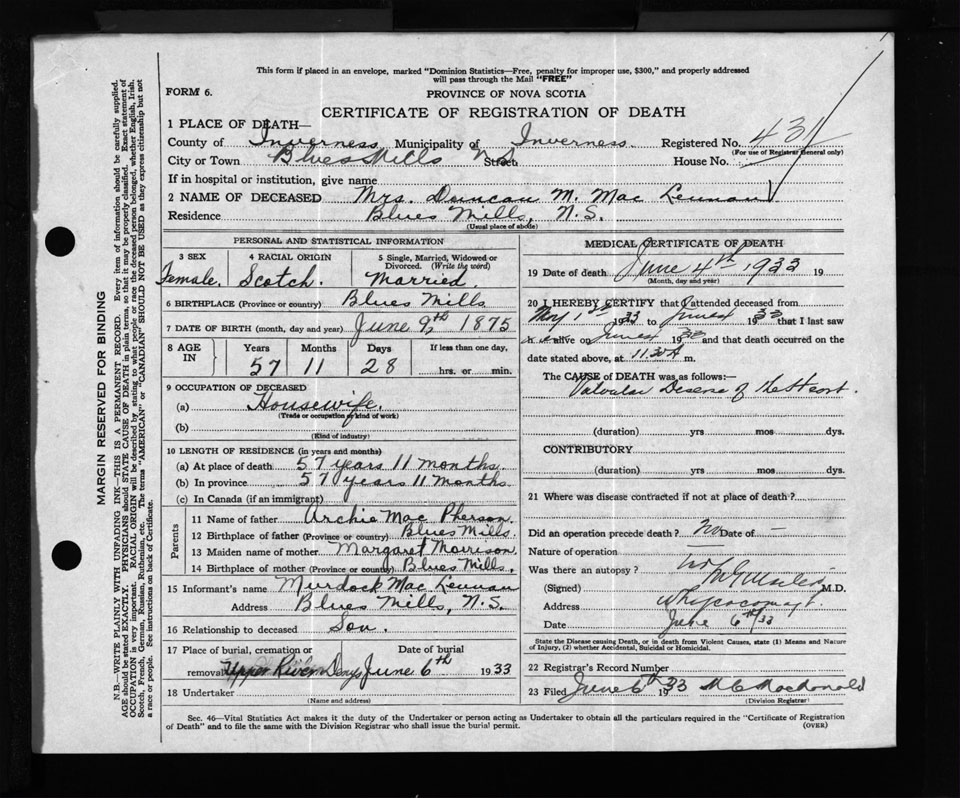 This form if placed in an envelope, marked "Dominion Statistics—Free, penalty for improper use, $300," and properly addressed
will pass through the Mail "FREE"
FORM 6.
PROVINCE OF NOVA SCOTIA
CERTIFICATE OF REGISTRATION OF DEATH
1 PLACE OF DEATH—
County of Inverness Municipality of Inverness Registered No. 431
(For use of Registrar General only)
City or Town Blues Mills N.S. Street House No.
If in hospital or institution, give name
2 NAME OF DECEASED Mrs. Duncan M. Mac Lennan
Residence Blues Mills, N.S.
(Usual place of abode)
PERSONAL AND STATISTICAL INFORMATION
3 SEX 4 RACIAL ORIGIN 5 Single, Married, Widowed or
Divorced. (Write the word)
Female. Scotch. Married.
6 BIRTHPLACE (Province or country) Blues Mills
7 DATE OF BIRTH (month, day and year) June 9th 1875
8 AGE IN Years Months Days If less than one day,
57 11 28 hrs. or min.
9 OCCUPATION OF DECEASED
(a) Housewife.
(Trade or occupation or kind of work)
(b)
(Kind of industry)
10 LENGTH OF RESIDENCE (in years and months)
(a) At place of death 57 years 11 months.
(b) In province 57 years 11 months.
(c) In Canada (if an immigrant)
Parents
11 Name of father Archie Mac Pherson.
12 Birthplace of father (Province or country) Blues Mills.
13 Maiden name of mother Margaret Morrison.
14 Birthplace of mother (Province or country) Blues Mills.
15 Informant's name Murdock Mac Lennan
Address Blues Mills, N.S.
16 Relationship to deceased Son.
17 Place of burial, cremation or Date of burial
removal Upper River Denys June 6th 1933
18 Undertaker
(Name and address)
MEDICAL CERTIFICATE OF DEATH
19 Date of death June 4th 1933 19
(Month, day and year)
20 I HEREBY CERTIFY that I attended deceased from
May 1st 1933 to June 1933 that I last saw
alive on June 1933 and that death occurred on
the date stated above, at 11.30 A m.
The CAUSE of DEATH was as follows:—
Valvular Disease of the Heart
(duration) yrs mos dys.
CONTRIBUTORY
(duration) yrs mos dys.
21 Where was disease contracted if not at place of death?
Did an operation precede death? no Date of —
Nature of operation
Was there an autopsy? no
(Signed) M.D.
Address Whycocomagh
Date June 6th/33
State the Disease causing Death, or in death from Violent Causes, state (1) Means and Nature
of Injury, (2) whether Accidental, Suicidal or Homicidal.
22 Registrar's Record Number
23 Filed June 6th 1933 M C MacDonald
(Division Registrar)
Sec. 46—Vital Statistics Act makes it the duty of the Undertaker or person acting as Undertaker to obtain all the particulars required in the "Certificate of Registration
of Death" and to file the same with the Division Registrar who shall issue the burial permit.
(OVER)
MARGIN RESERVED FOR BINDING
N.B.—WRITE PLAINLY WITH UNFADING INK—THIS IS A PERMANENT RECORD. Every item of information should be carefully supplied.
AGE should be stated EXACTLY. PHYSICIANS should STATE CAUSE OF DEATH in plain terms, so that it may be properly classified. Exact statement of
OCCUPATION is very important. RACIAL ORIGIN will be described by stating to what people or race the deceased person belonged, whether English, Irish,
Scotch, French, German, Russian, Ruthenian, etc. The terms "AMERICAN" or "CANADIAN" SHOULD NOT BE USED as they express citizenship but not
a race or people. See instructions on back of Certificate.